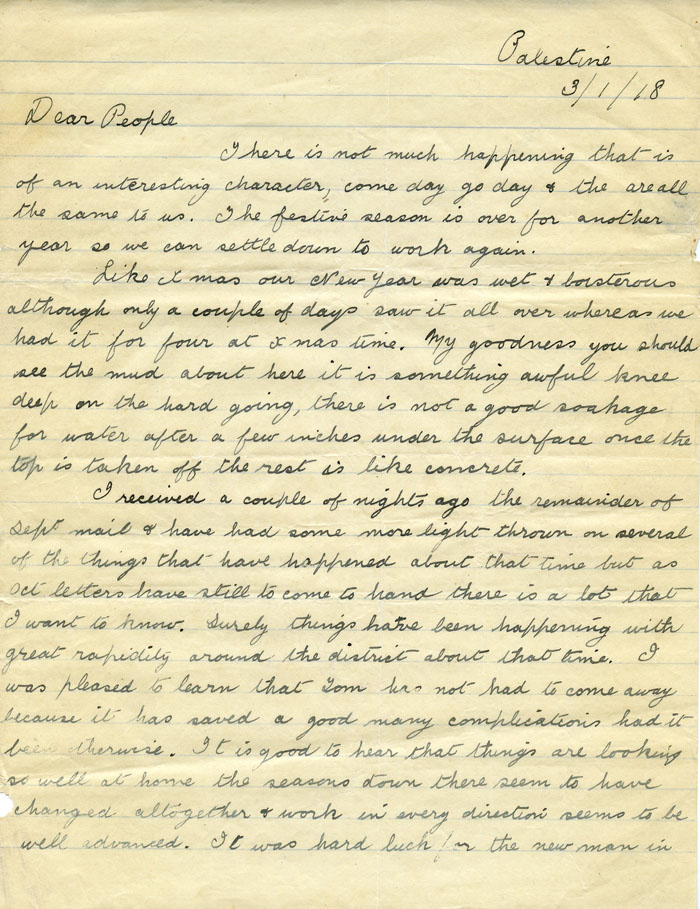 Palestine
3/1/18
Dear People
There is not much happening that is
of an interesting character, come day go day & the are all
the same to us. The festive season is over for another
year so we can settle down to work again.
Like Xmas our New Year was wet & boisterous
although only a couple of days saw it all over whereas we
had it for four at Xmas time. My goodness you should
see the mud about here it is something awful knee
deep on the hard going, there is not a good soakage
for water after a few inches under the surface once the
top is taken off the rest is like concrete.
I received a couple of nights ago the remainder of
Sept mail & have had some more light thrown on several
of the things that have happened about that time but as
Oct letters have still to come to hand there is a lot that
I want to know. Surely things have been happening with
great rapidity around the district about that time. I
was pleased to learn that Tom has not had to come away
because it has saved a good many complications had it
been otherwise. It is good to hear that things are looking
so well at home the seasons down there seem to have
changed altogether & work in every direction seems to be
well advanced. It was hard luck for the new man in